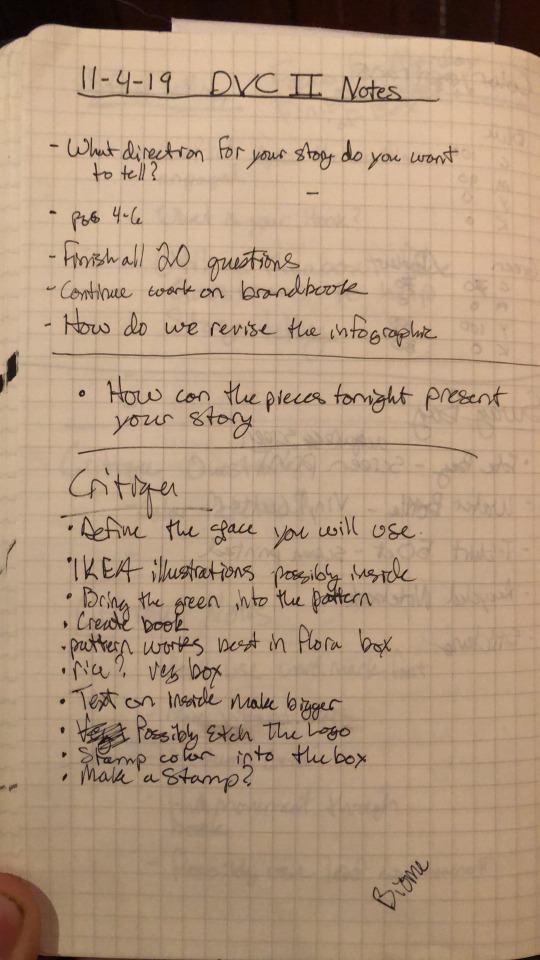 11-4-19 DVC II Notes
- What direction for your story do you want
to tell?
-
- pgs 4-6
- Finish all 20 questions
- Continue work on brandbook
- How do we revise the infographic
• How can the pieces tonight present
your story
Critique
• Define the space you will use.
• IKEA illustrations possibly inside
• Bring the green into the pattern
• Create book
• pattern works best in flora box
• rice? veg box
• Text on inside make bigger
• Possibly Etch The Logo
• Stamp color into the box
• Make a Stamp?
Biome